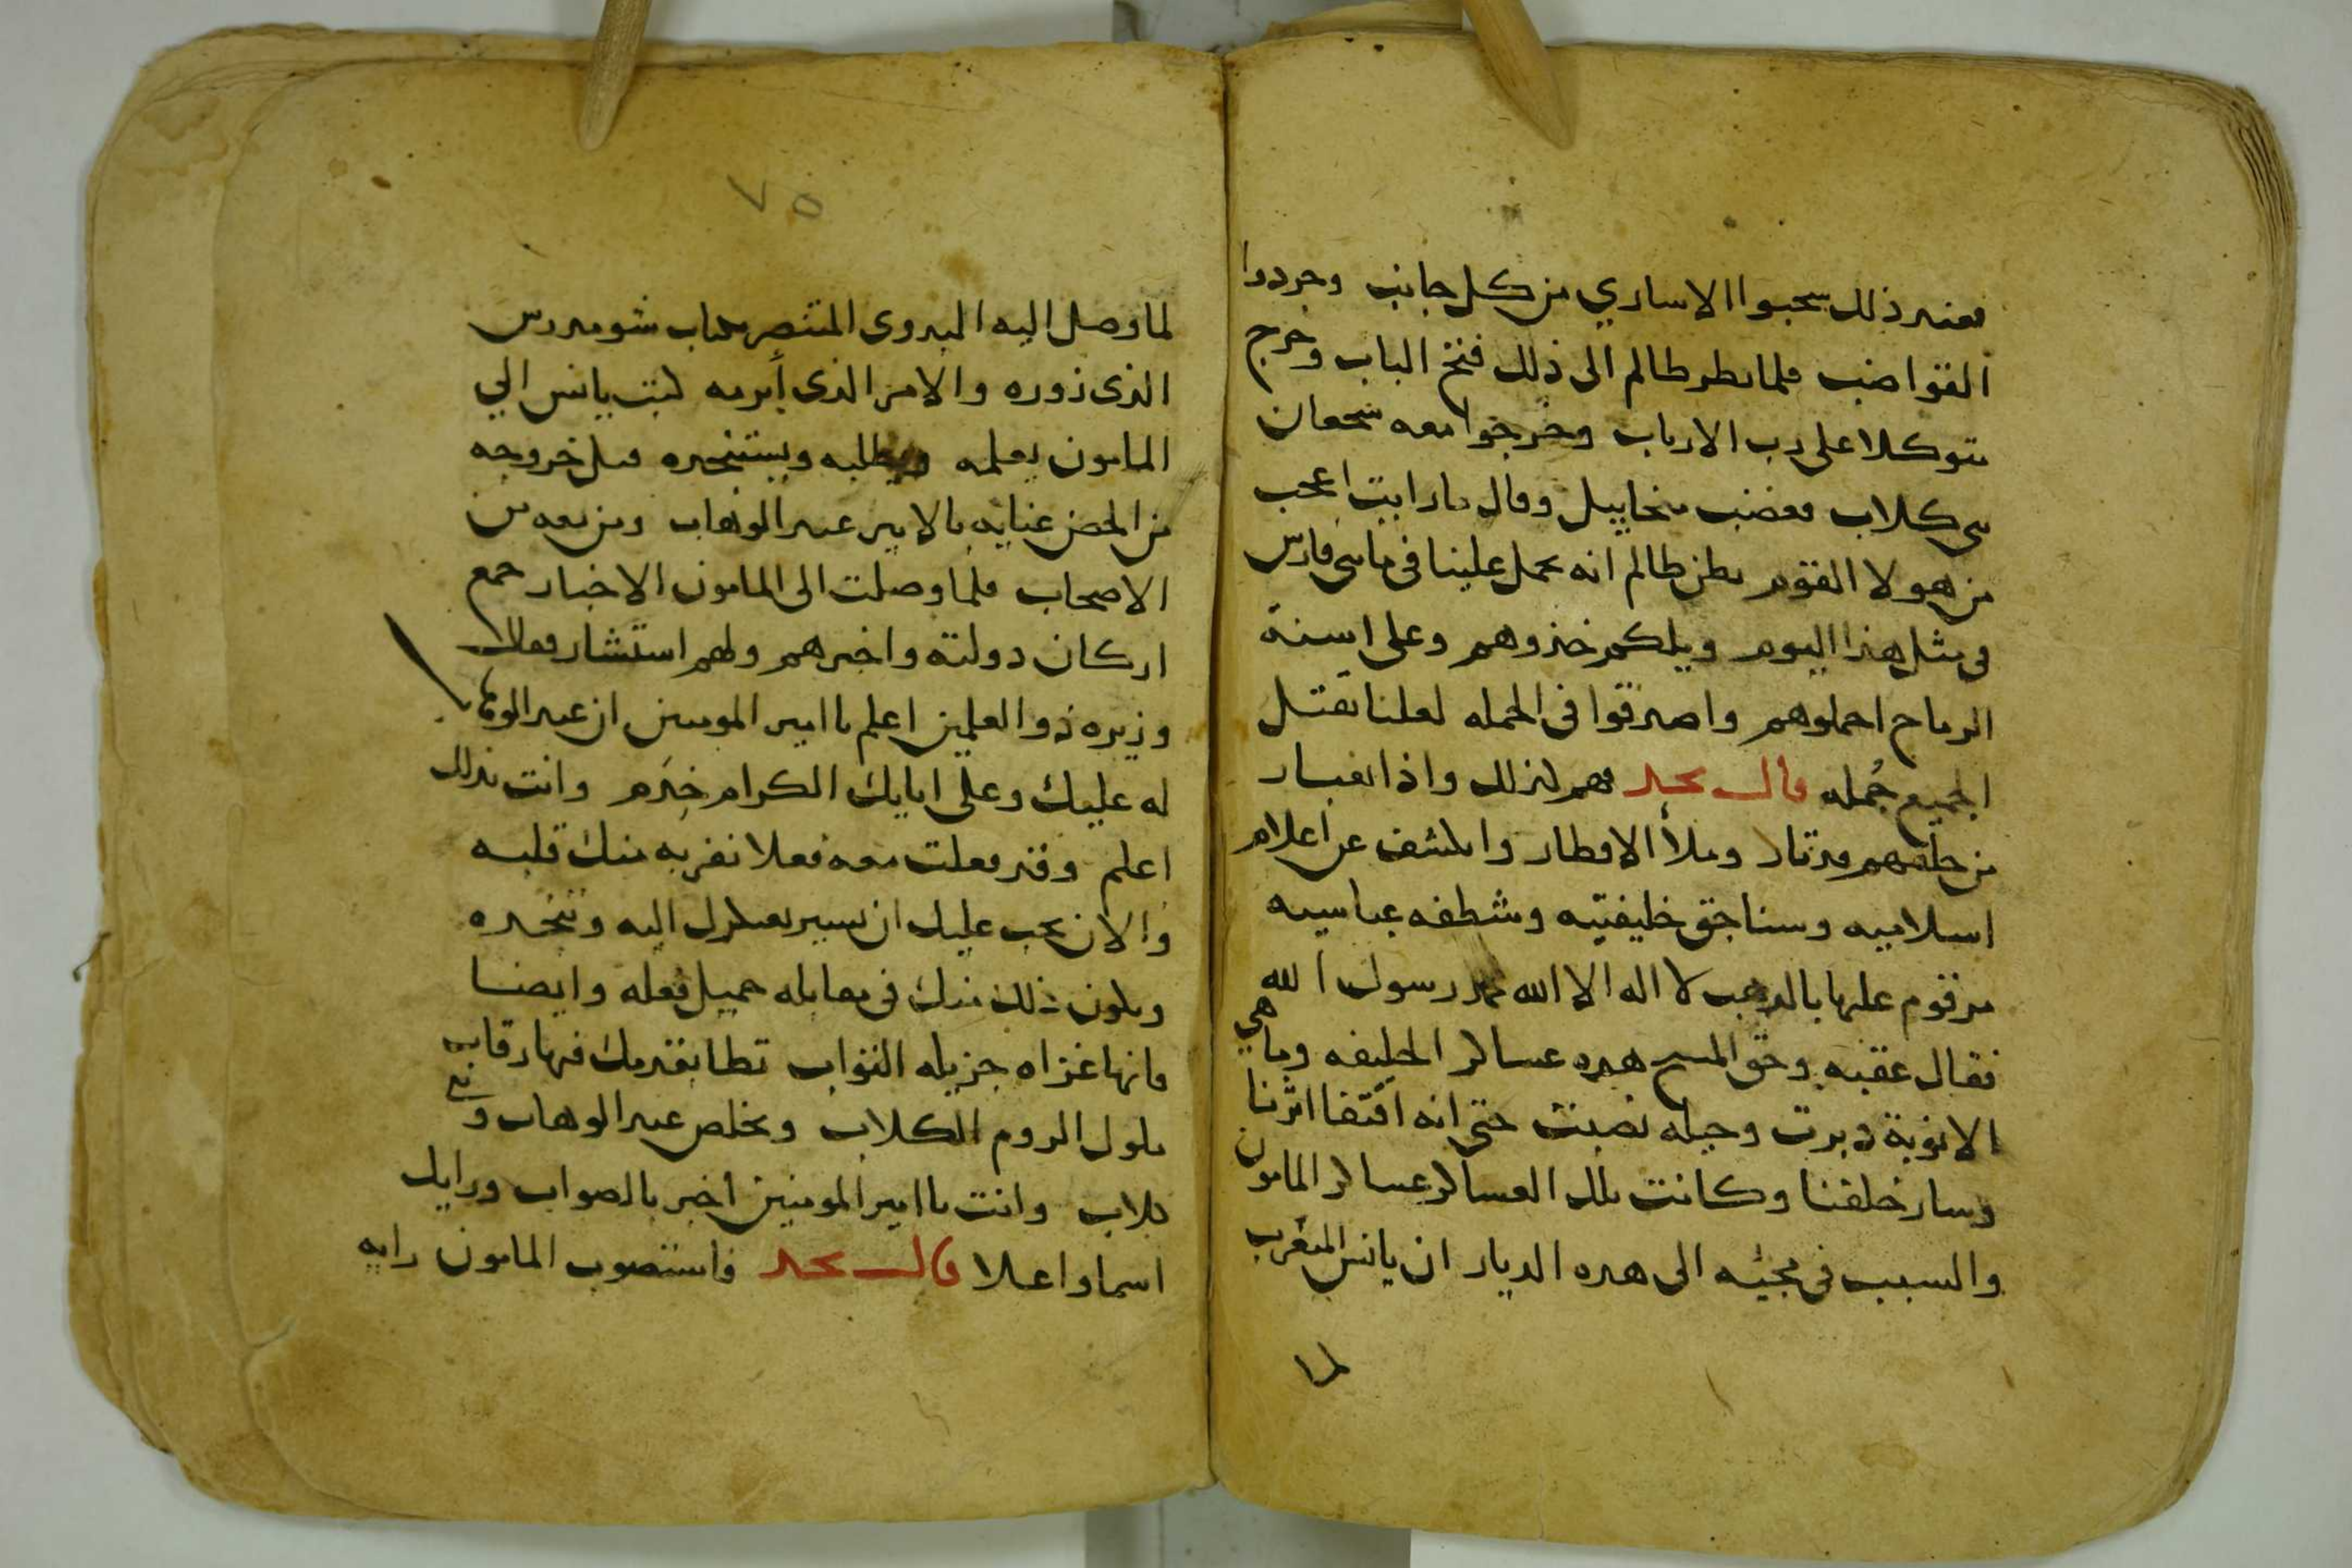 فعند ذلك سحبوا الاساري من كل جانب وجردوا
القواضب فلما نظر ظالم الى ذلك فتح الباب وخرج
متوكلا على رب الارباب وخرجوا معه شجعان
بني كلاب فغضب ميخاييل وقال ما رايت اعجب
من هولا القوم يظن ظالم انه يحمل علينا في مايتي فارس
في مثل هذا اليوم ويلكم خذوهم وعلى اسنة
الرماح احملوهم واصدقوا في الحمله لعلنا نقتل
الجميع جُمله قال نجد فهم لذلك واذا بغبار
من خلفهم قد ثار وملأ الاقطار وانكشف عن اعلام
اسلاميه وسناجق خليفتيه وشطفه عباسيه
مرقوم عليها بالذهب لا اله الا الله محمد رسول الله
فقال عقبه وحق المسيح هذه عساكر الخليفه وما هي
الا نوبة دبرت وحيله نصبت حتى انه اقتفا اثرنا
وسار خلفنا وكانت تلك العساكر عساكر المامون
والسبب في مجيئه الى هذه الديار ان يانس المتغرب
لما
٧٥
لما وصل اليه البدوى المتنصر بكتاب شومدرس
الذى زوره والامر الذى أبرمه كتب يانس الي
المامون يعلمه ويطلبه ويستنجده قبل خروجه
من الحصن عنايه بالامير عبد الوهاب ومن معه من
الاصحاب فلما وصلت الى المامون الاخبار جمع
اركان دولته واخبرهم ولهم استشار فقال
وزيره ذو العلمين اعلم يا امير المومنين ان عبد الوهاب
له عليك وعلى ابايك الكرام خِدَم وانت بذلك
اعلم وقد فعلت معه فعلا نفر به منك قلبه
والان يجب عليك ان تسير بعسكرك اليه وتنجده
ويكون ذلك منك في مقابله جميل فعله وايضا
فانها غزاه جزيله الثواب تطا بقدمك فيها رقاب
ملوك الروم الكلاب ويخلص عبد الوهاب وبني
كلاب وانت يا امير المومنين اخبر بالصواب ورايك
اسما واعلا قال نجد فاستصوب المامون رايه